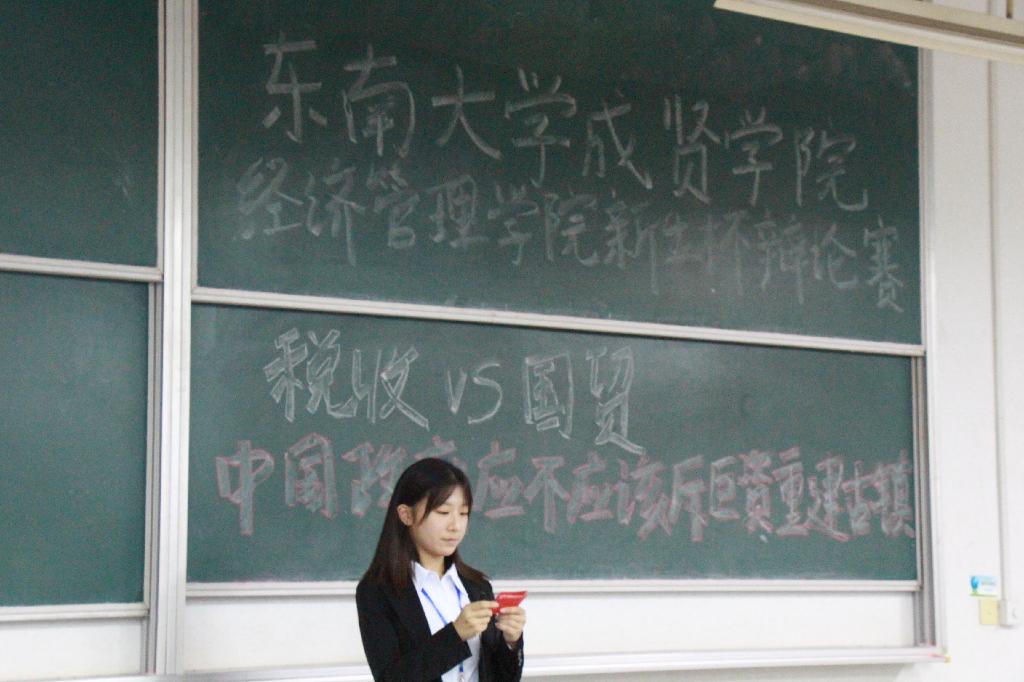 东南大学成贤学院
经济管理学院新生杯辩论赛
税收 VS 国贸
中国 应不应该斥巨資重建古镇